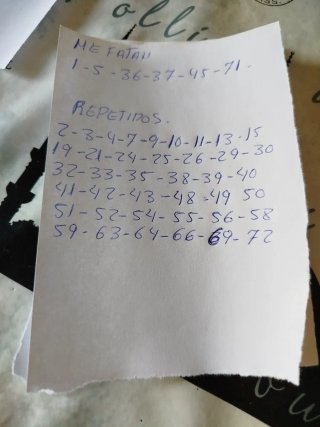 olli
ME FATAN
1-5-36-37-45-71.
REPETIDOS.
2-3-4-7-9-10-11-13-15
19-21-24-25-26-29-30
32-33-35-38-39-40
41-42-43-48-49 50
51-52-54-55-56-58
59-63-64-66-69-72